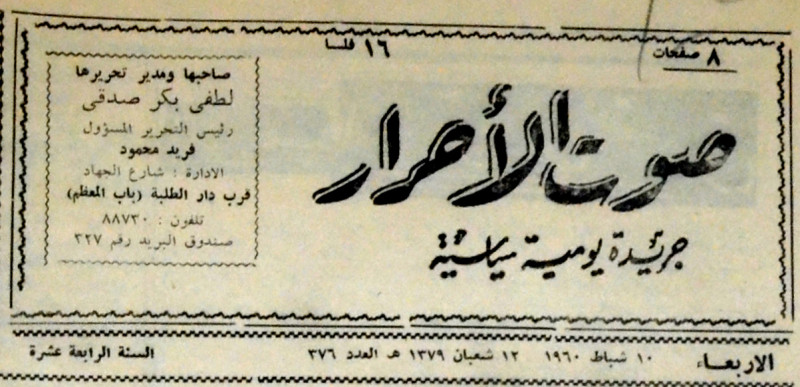 ٨ صفحات
١٦ فلسا
صوت الأحرار
جريدة يومية سياسية
صاحبها ومدير تحريرها
لطفي بكر صدقي
رئيس التحرير المسؤول
فريد محمود
الادارة : شارع الجهاد
قرب دار الطلبة (باب المعظم)
تلفون : ٨٨٧٣٠
صندوق البريد رقم ٣٢٧
الاربعاء ١٠ شباط ١٩٦٠ ١٢ شعبان ١٣٧٩ هـ العدد ٣٧٦ السنة الرابعة عشرة